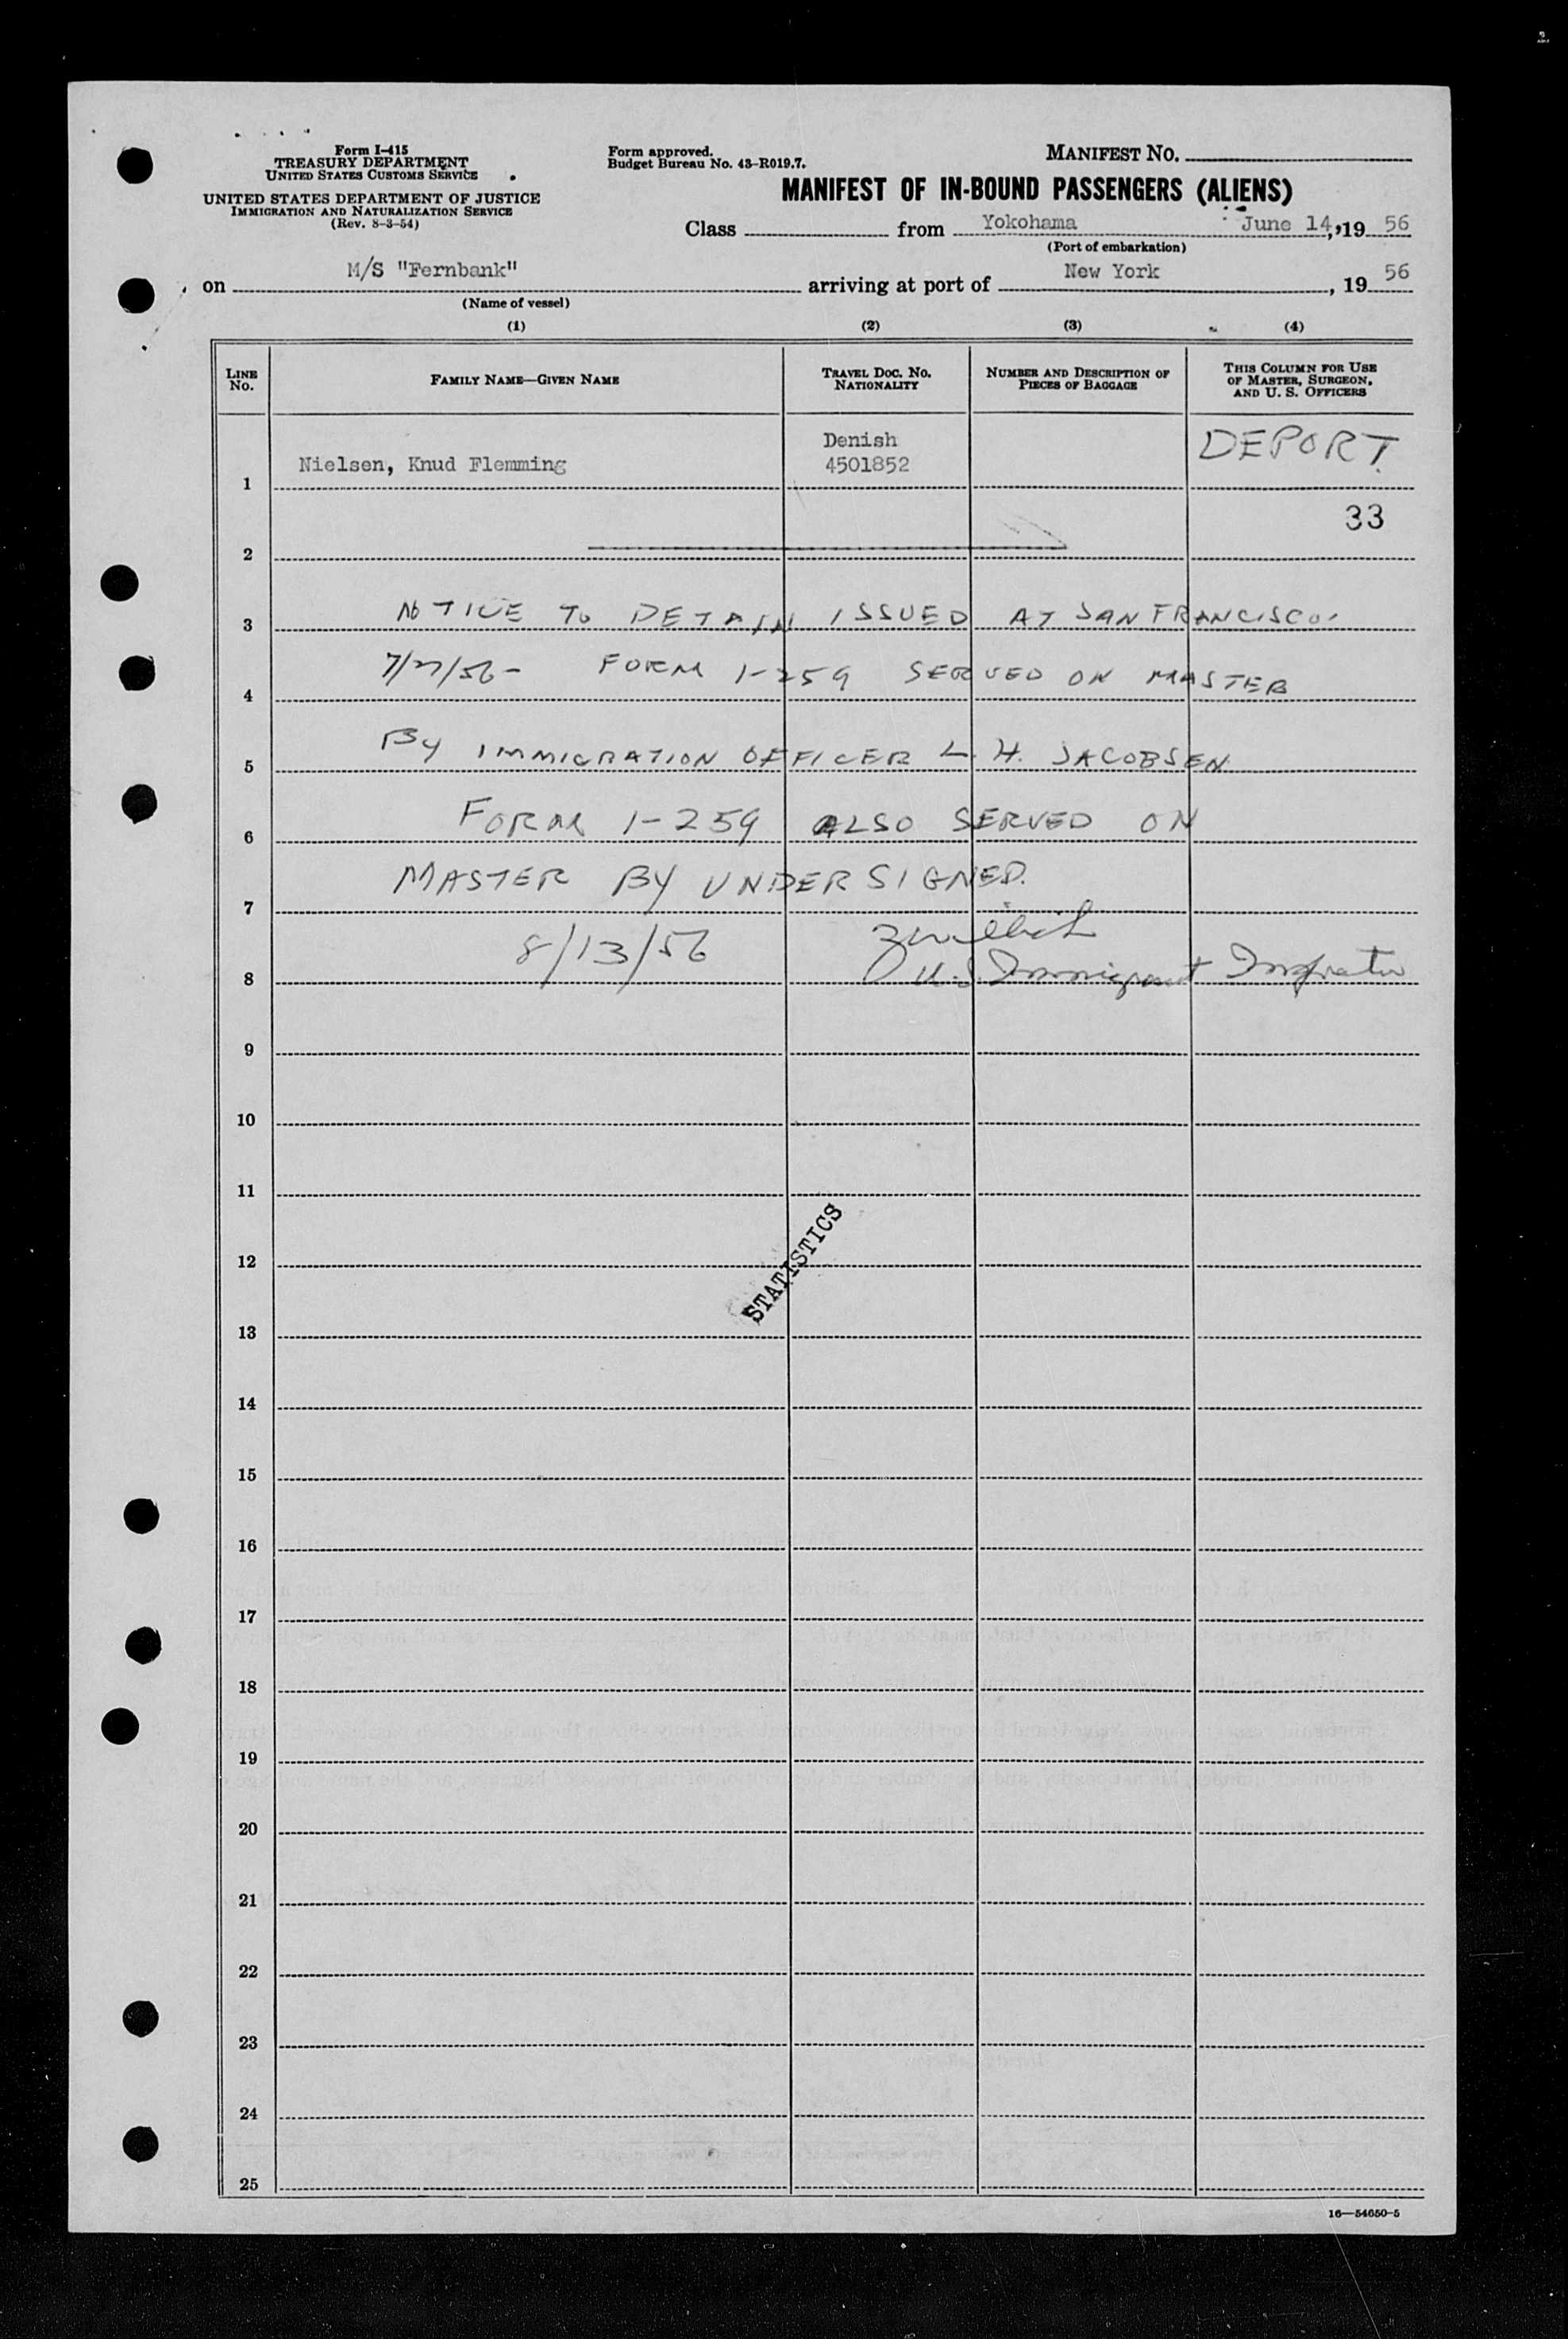 Form I-415
TREASURY DEPARTMENT
UNITED STATES CUSTOMS SERVICE
UNITED STATES DEPARTMENT OF JUSTICE
IMMIGRATION AND NATURALIZATION SERVICE
(Rev. 8-3-54)
Form approved.
Budget Bureau No. 43-R019.7.
MANIFEST NO.
MANIFEST OF IN-BOUND PASSENGERS (ALIENS)
Class from Yokohama June 14, 19 56
(Port of embarkation)
on M/S "Fernbank" arriving at port of New York, 19 56
(Name of vessel)
(1) (2) (3) (4)
LINE NO. FAMILY NAME—GIVEN NAME TRAVEL DOC. NO. NATIONALITY NUMBER AND DESCRIPTION OF PIECES OF BAGGAGE THIS COLUMN FOR USE OF MASTER, SURGEON, AND U. S. OFFICERS
Denish DEPORT.
1 Nielsen, Knud Flemming 4501852
33
2
3 NOTICE TO DETAIN ISSUED AT SAN FRANCISCO.
4 7/27/56 - FORM 1-259 SERVED ON MASTER
5 BY IMMIGRATION OFFICER L. H. JACOBSEN
6 FORM 1-259 ALSO SERVED ON
7 MASTER BY UNDERSIGNED.
8 8/13/56
U.S. Immigrant Inspector
9
10
11
12
STATISTICS
13
14
15
16
17
18
19
20
21
22
23
24
25
16—54650-5